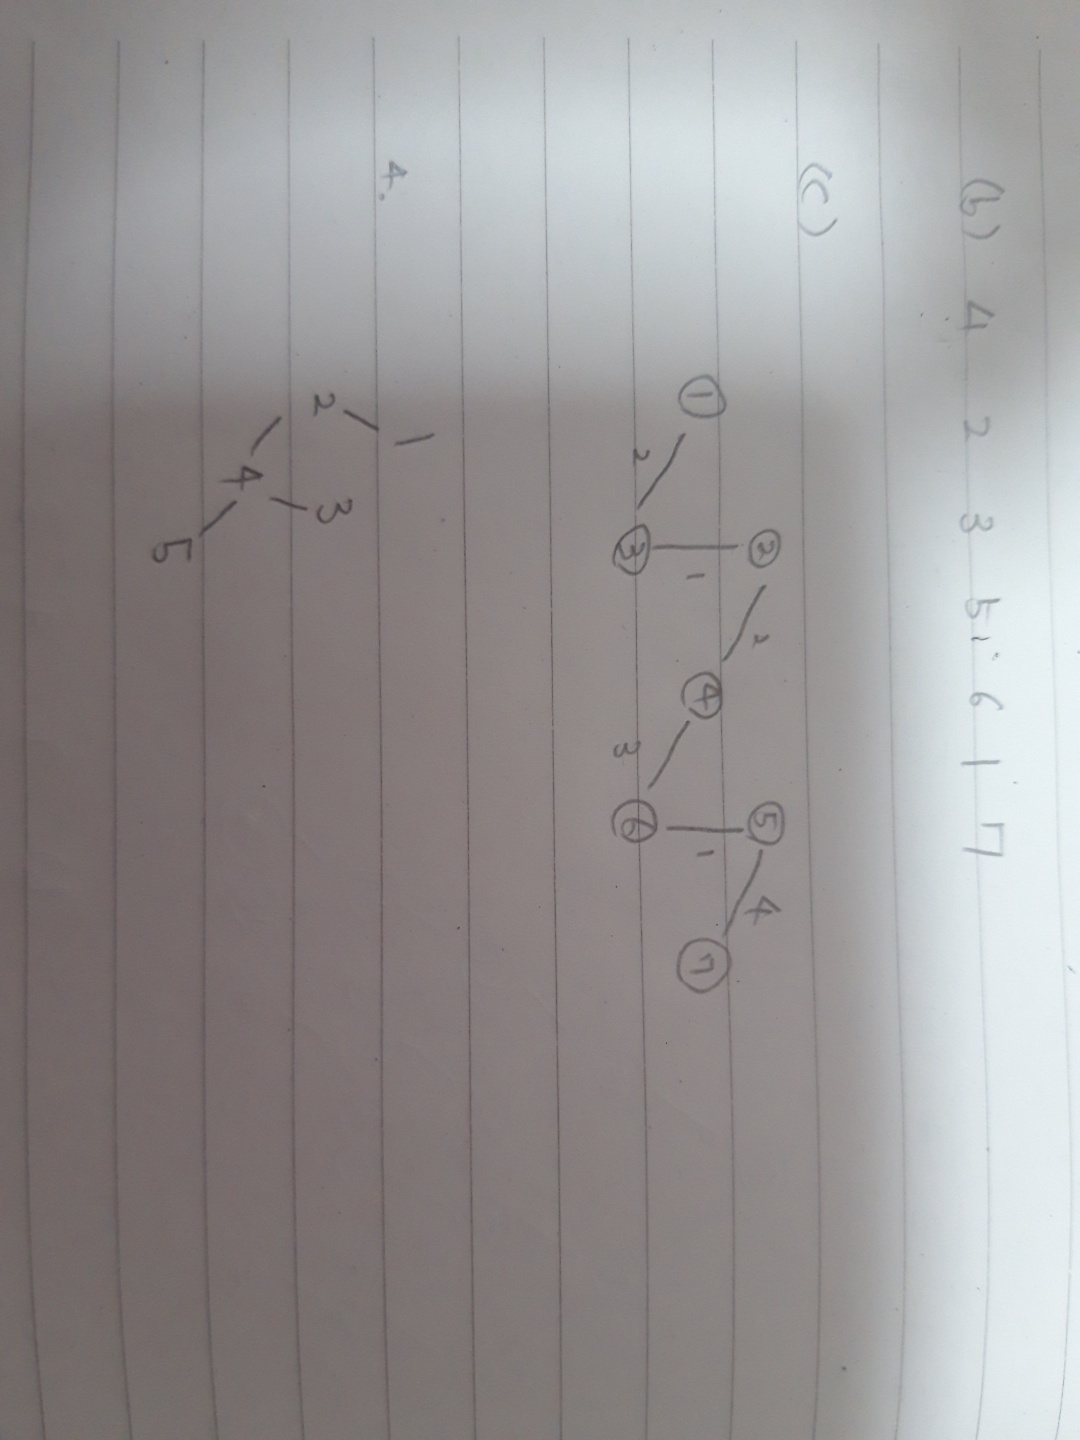 (b) 4 2 3 5 6 1 7
(c)
② 2 ⑤ 4
① 1 ④ 1 ⑦
2 ③ 3 ⑥
4. 1
2 3
4
5